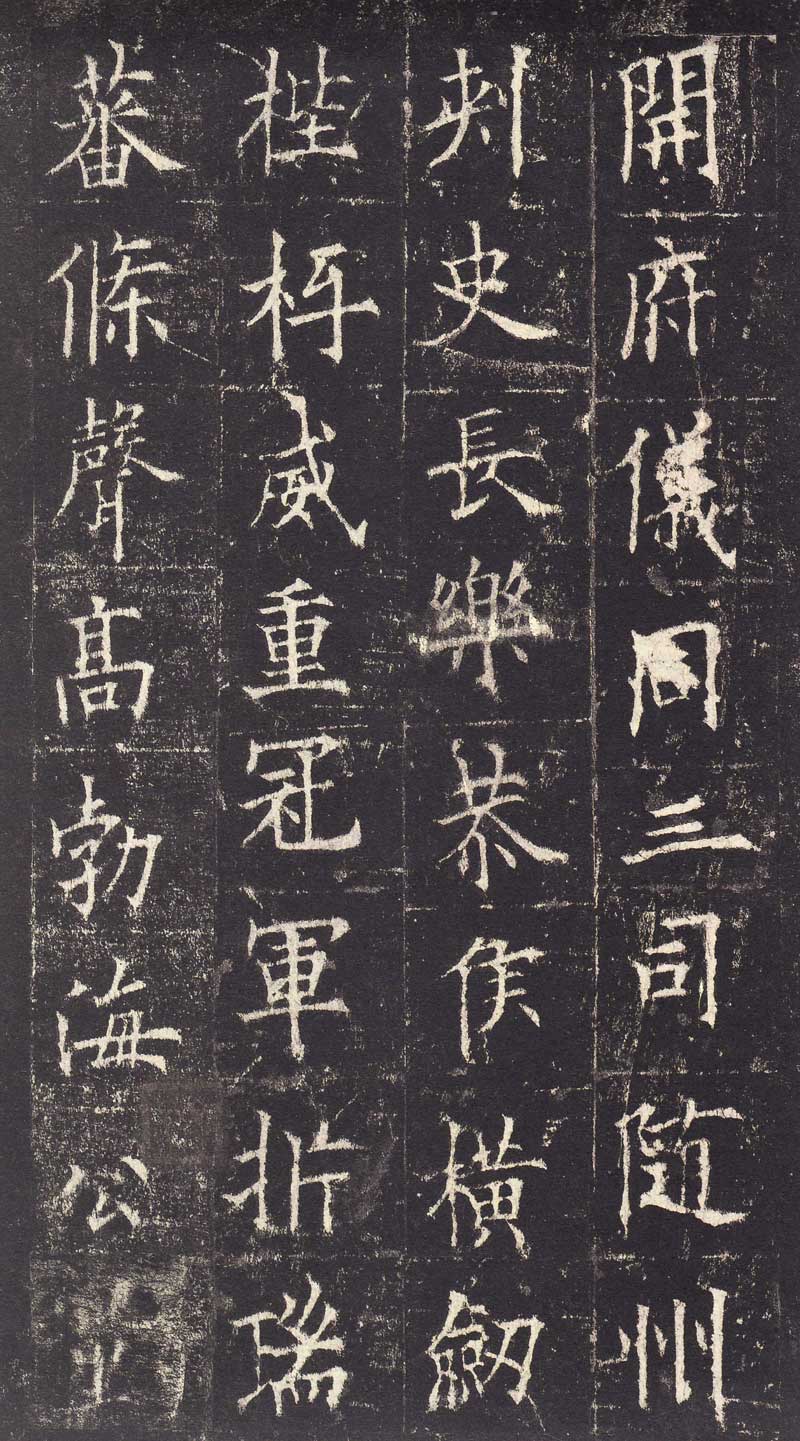 開府儀同三司隨州
刺史長樂恭侯橫劒
梐枑威重冠軍析瑞
蕃條聲高勃海公